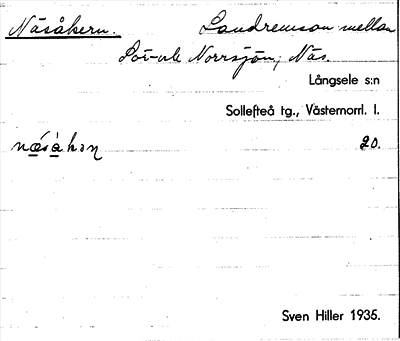 Näsåkern. Landremson mellan
Sör- ock Norrsjön, Näs.
Långsele s:n
Sollefteå tg., Västernorrl. l.
næ̀sàkəṇ 20.
Sven Hiller 1935.